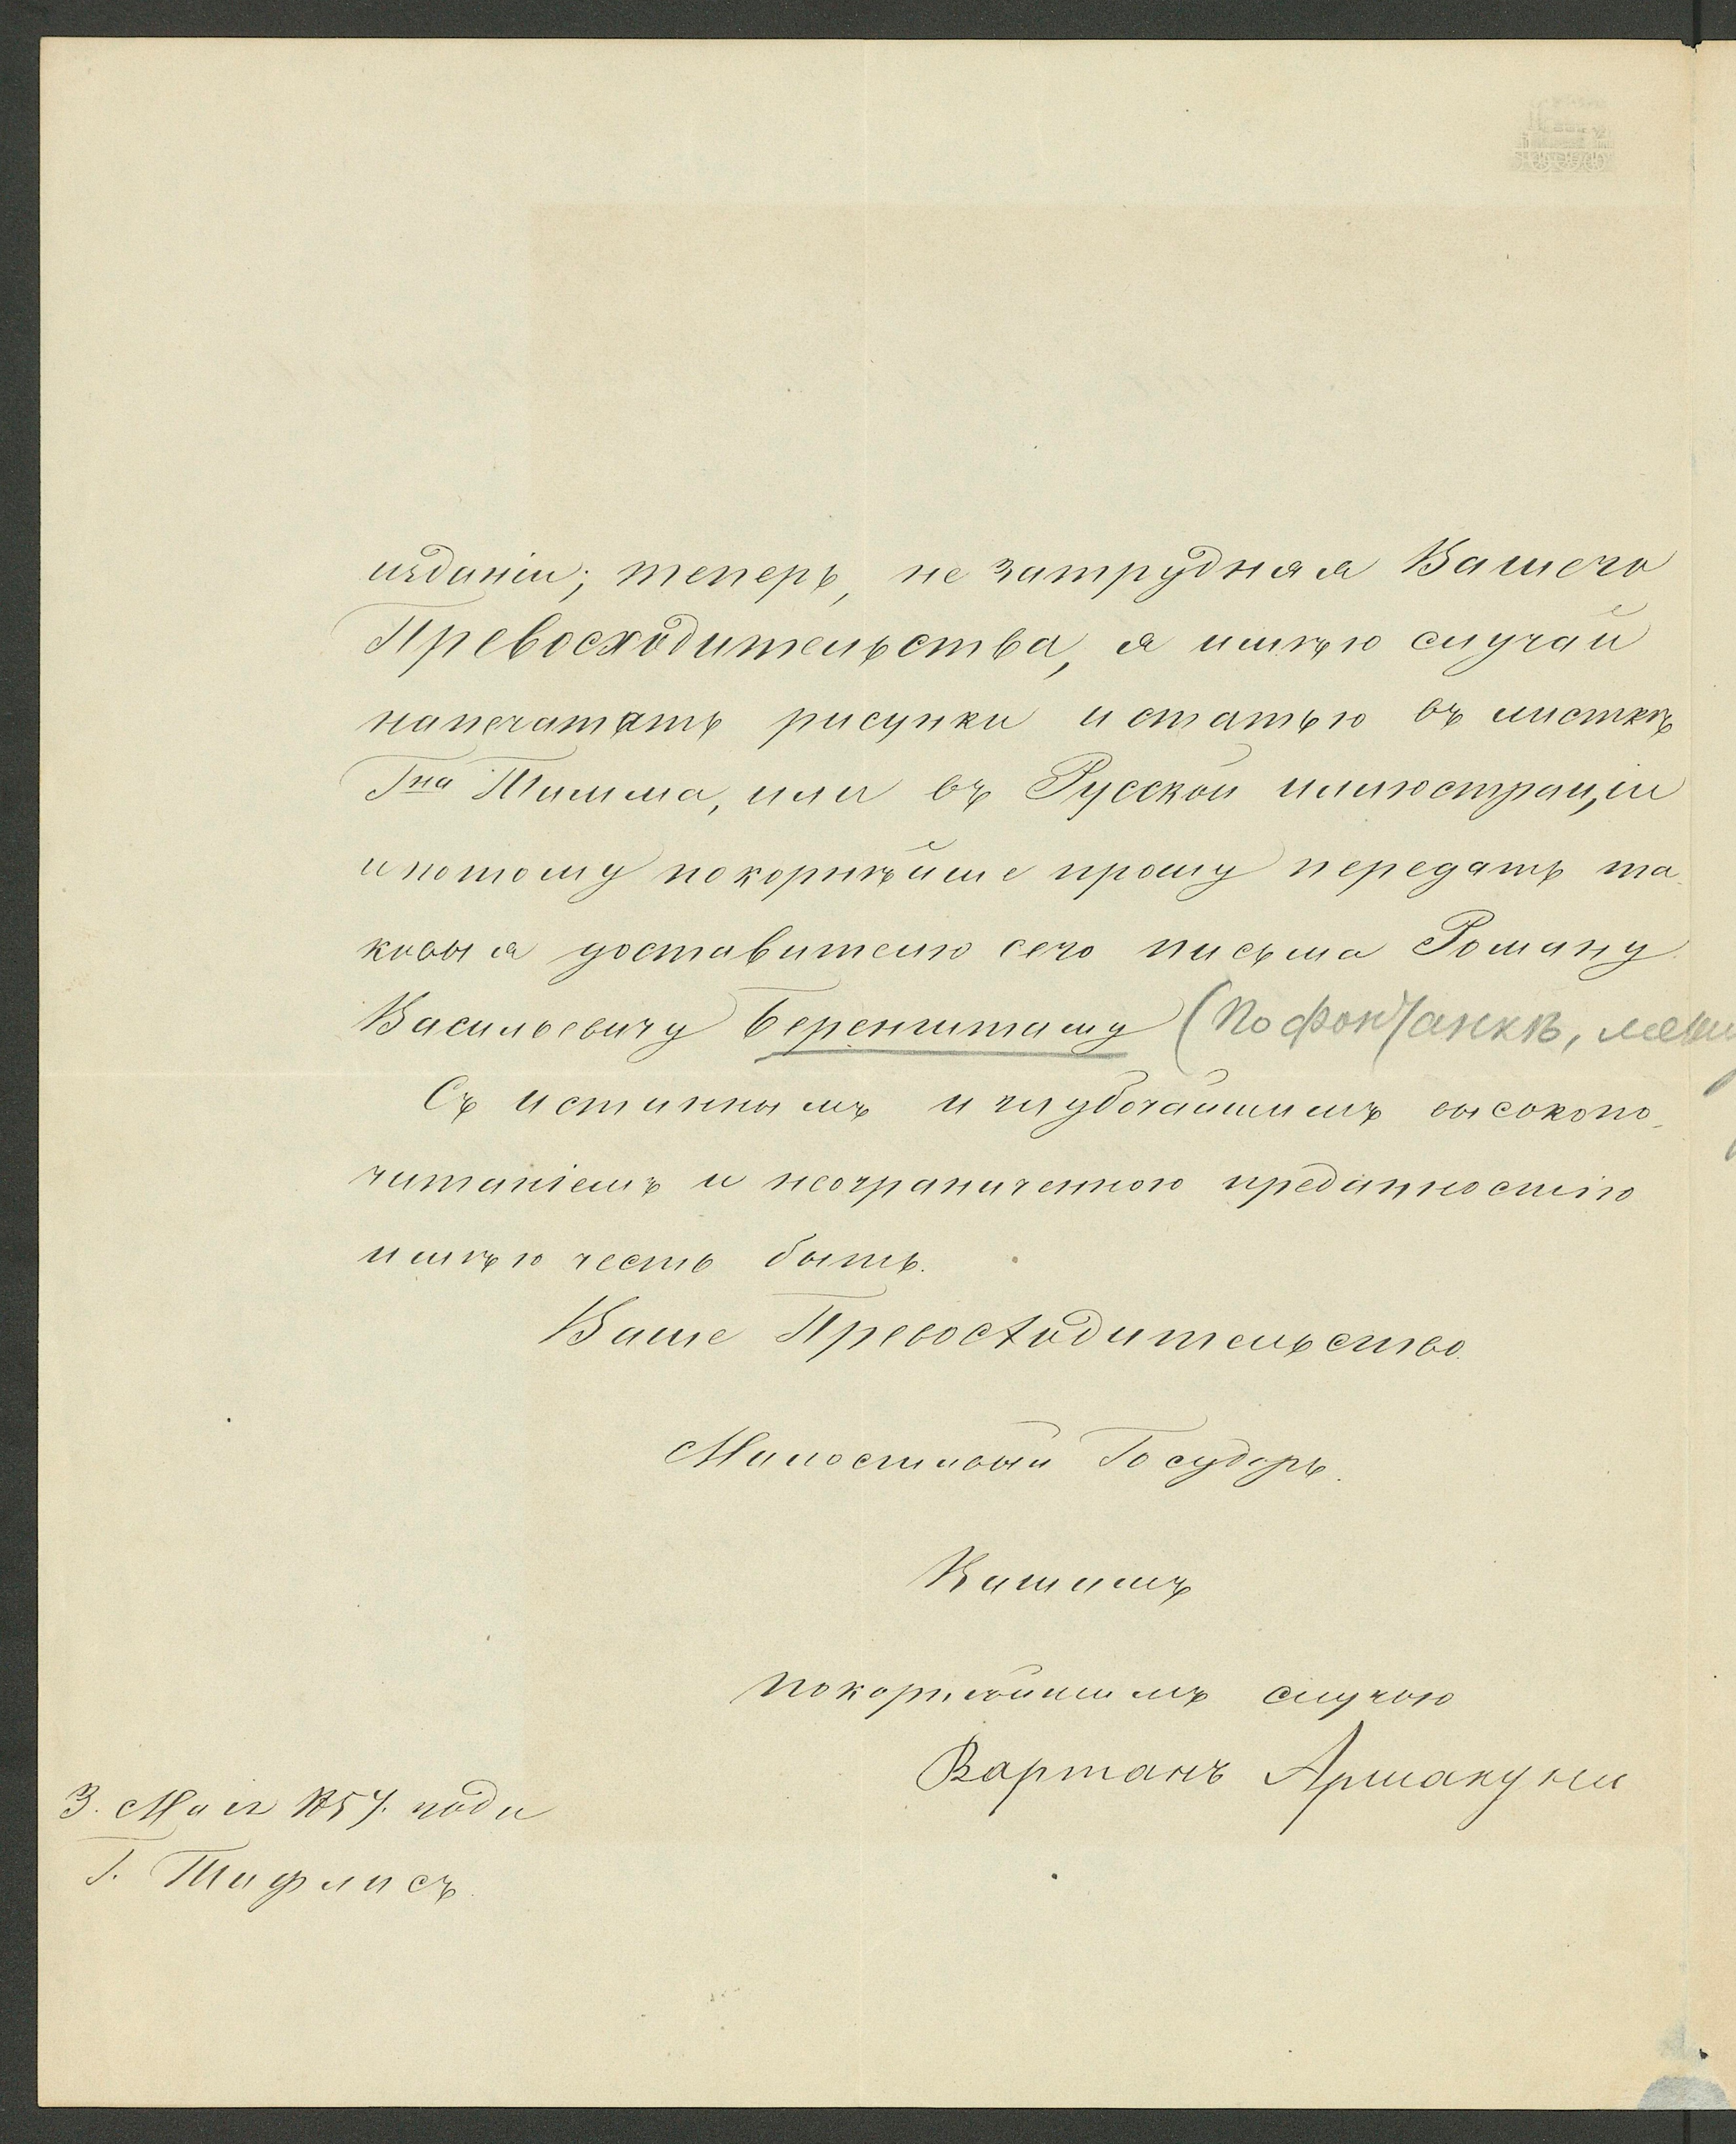 изданiи; теперь, не затрудняя Вашего
Превосходительства, я имѣю случай
напечатать рисунки и статью въ листкѣ
Гна Тимма, или въ Русской иллюстрацiи
и потому покорнѣйше прошу передать та-
ковыя доставителю сего письма Роману
Васильевичу Беренштаму (По фонтанкѣ,
Съ истиннымъ и глубочайшимъ высокопо-
читанiемъ и неограниченною преданностiю
имѣю честь быть.
Ваше Превосходительство.
Милостивый Государь.
Вашимъ
покорнѣйшимъ слугою
Вартанъ Аршакуни
3. Мая 1857. года
Г. Тифлисъ.